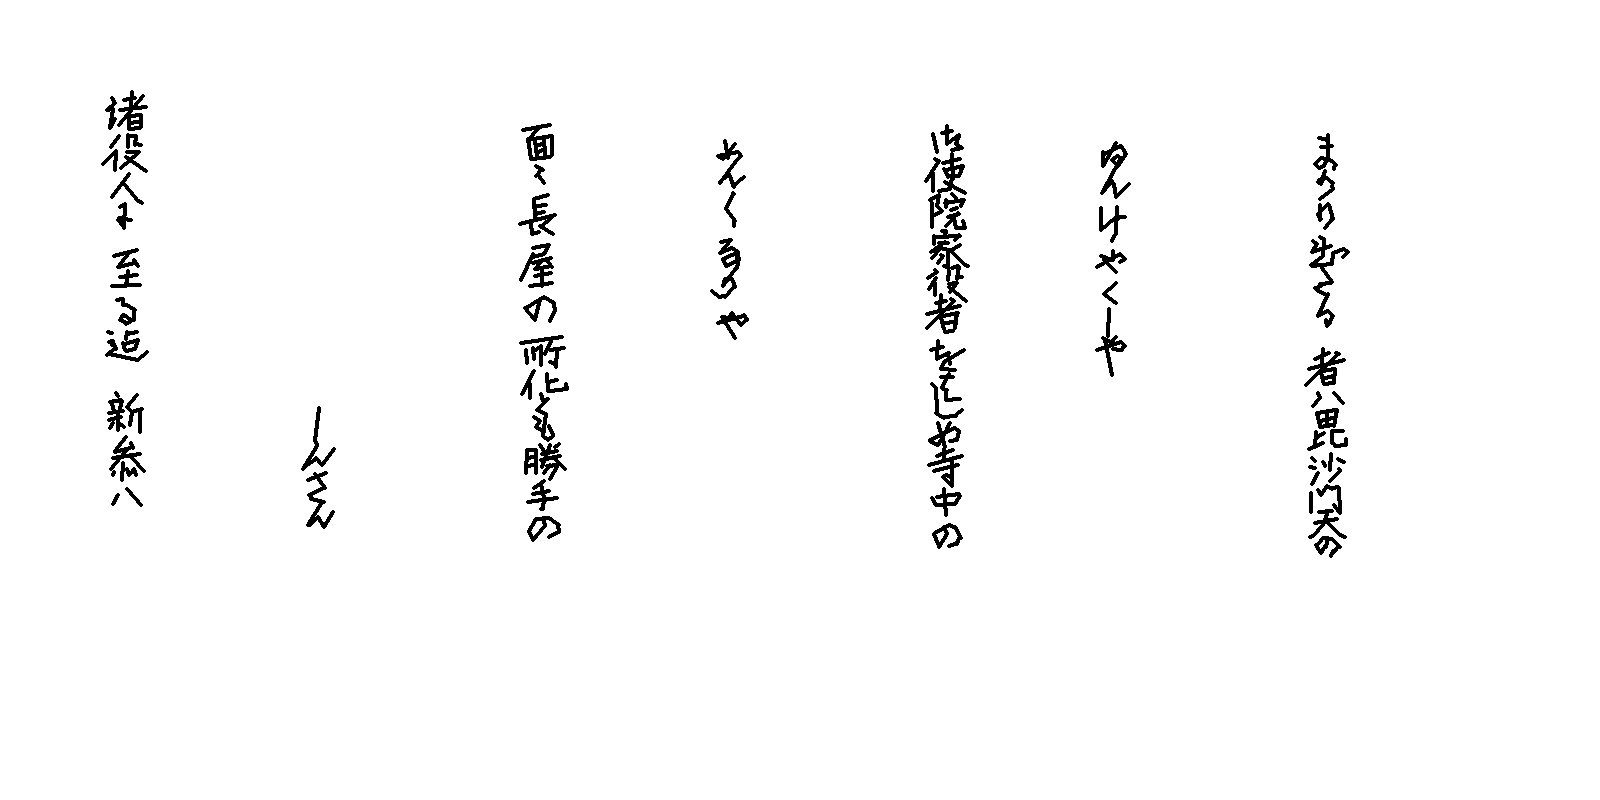 まかり出たる者ハ毘沙門天の
ゐんけやくしや
御使院家役者をはしめ寺中の
めんくなかや
面々長屋の所化も勝手の
しんさん
諸役人に至る迄新参ハ